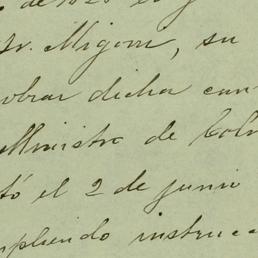 de 1826 el
Sr. Migoni, su
obrar dicha can-
Ministro de Colo
tó el 2 de junio
mpliendo instrucc